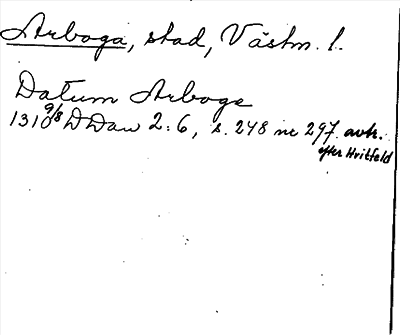 Arboga, stad, Västm. l.
Datum Arboge
1310 9/8 DDan 2:6, s. 248 nr 297 avtr.
efter Hvitfeld